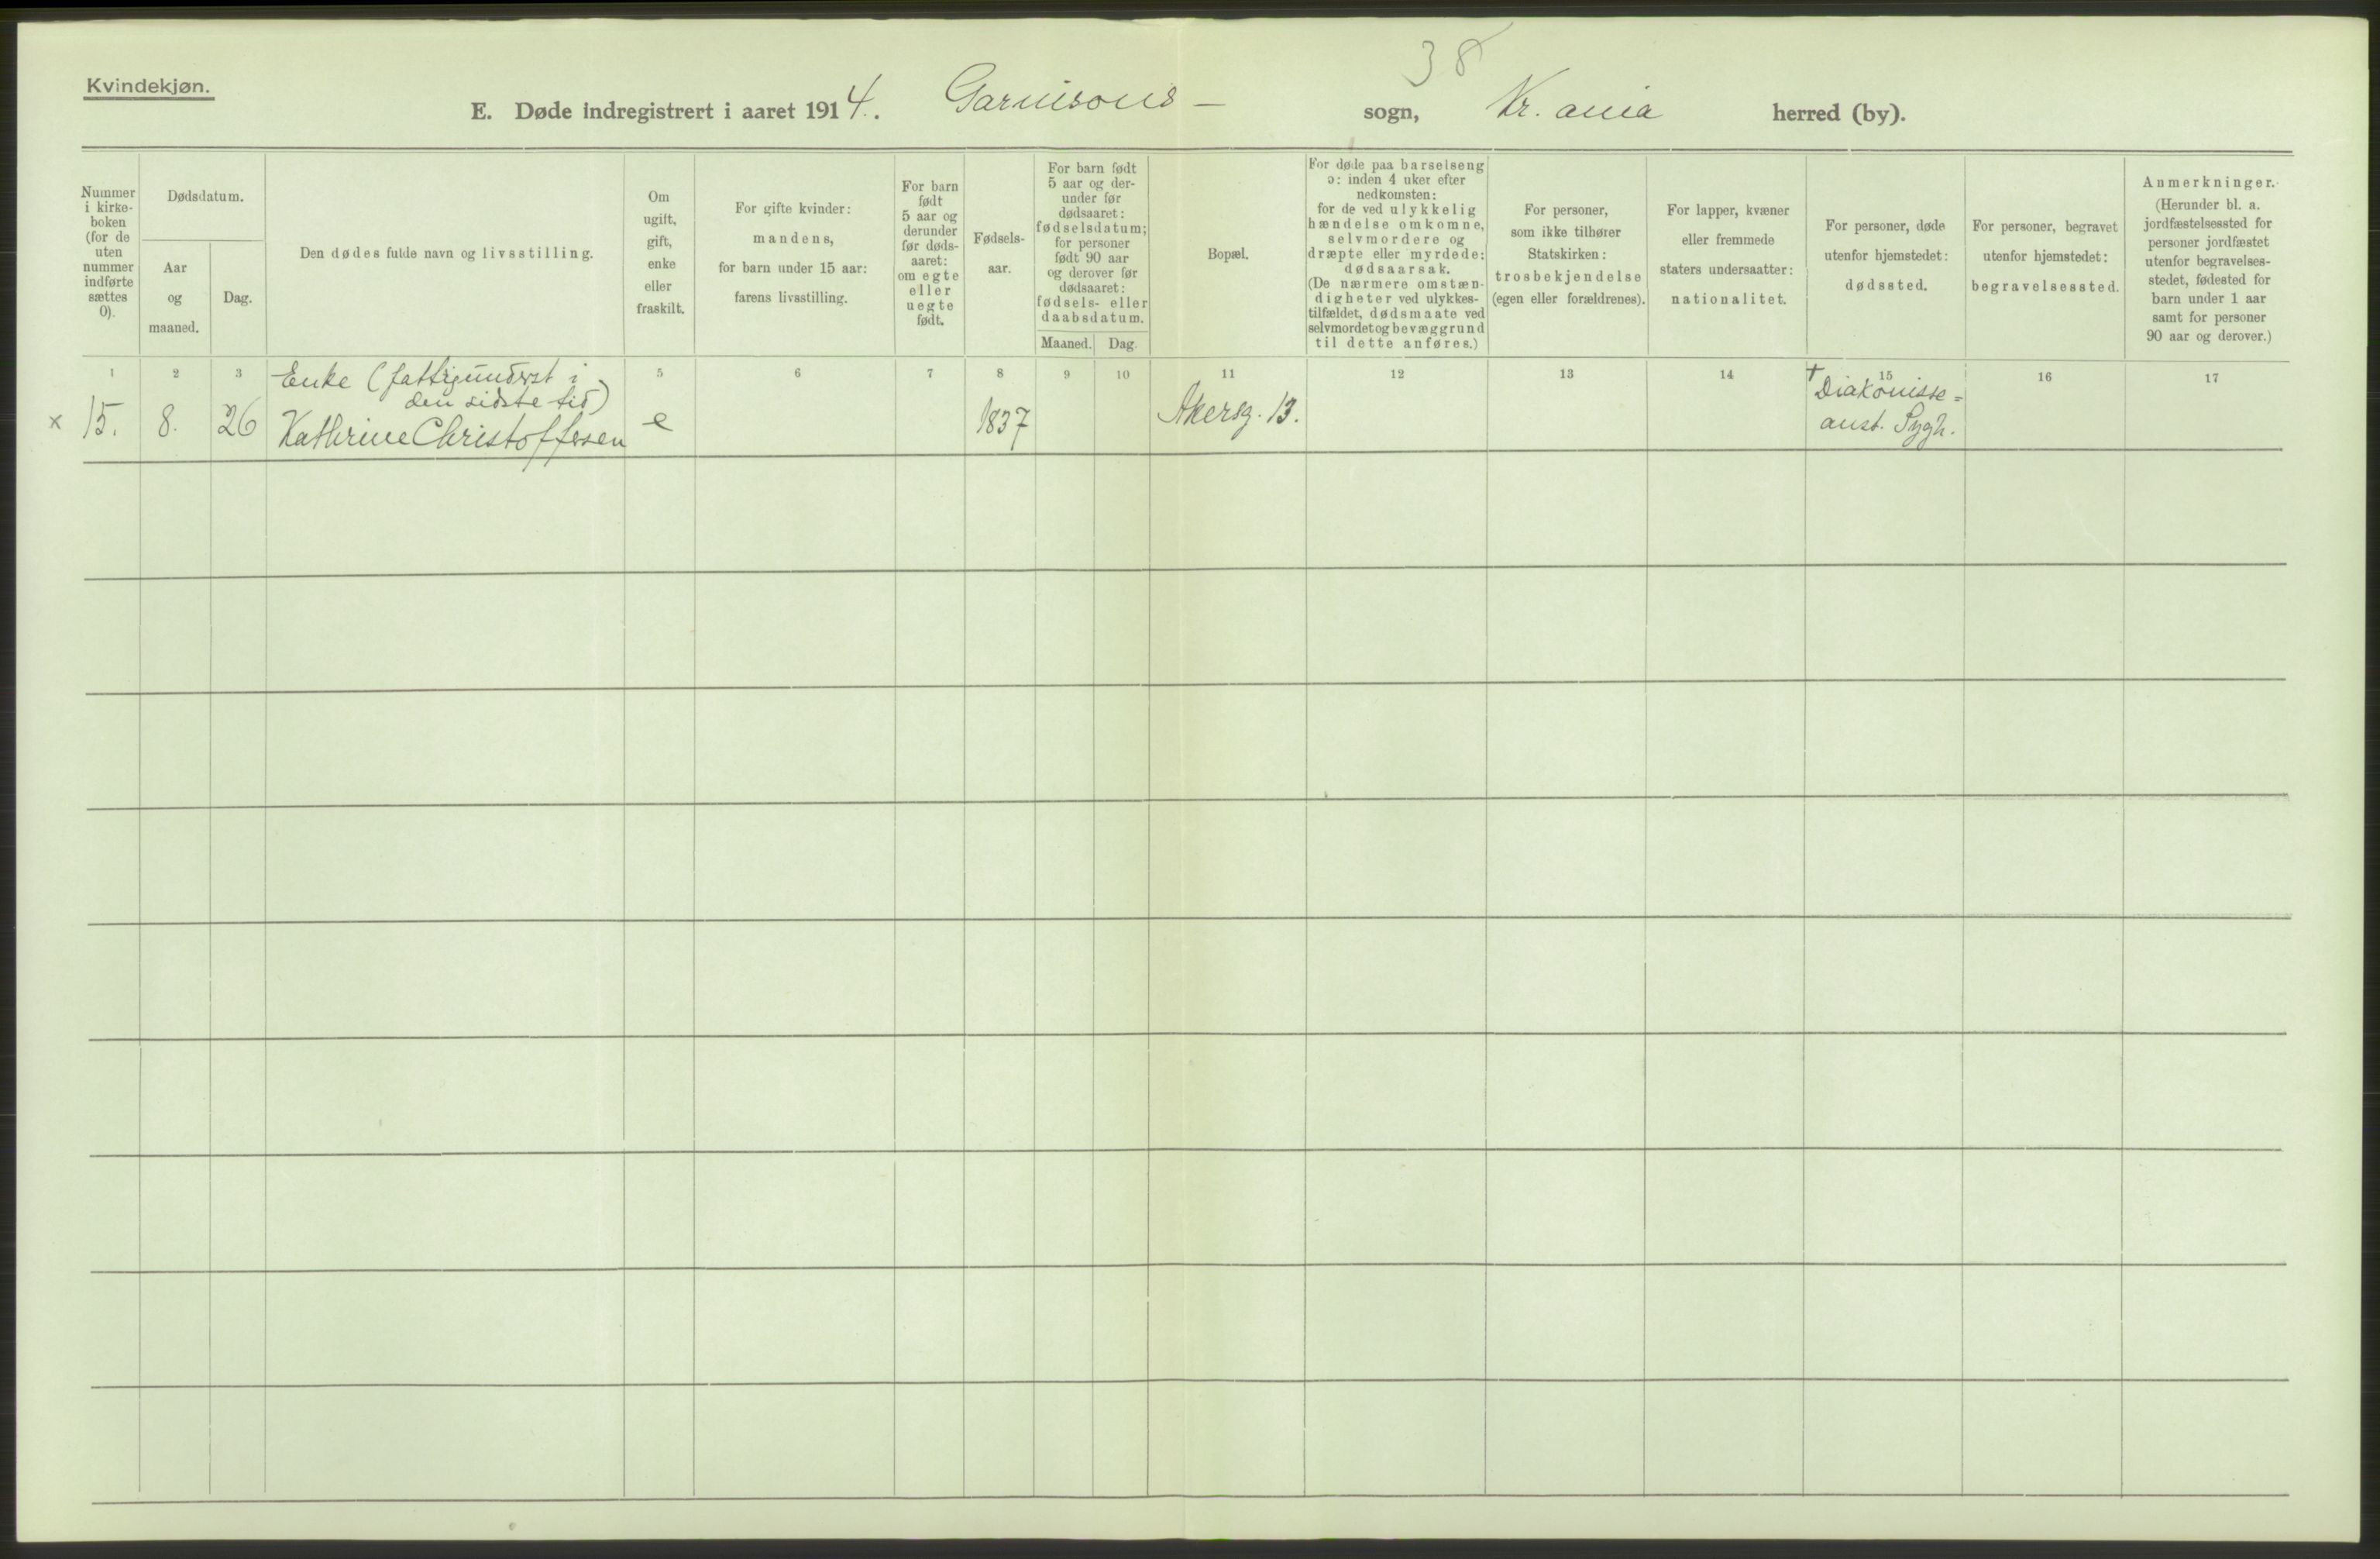 38
Kvindekjøn.
E. Døde indregistrert i aaret 1914. Garnisons – sogn, Kr. ania herred (by).
Nummer
i kirke-
boken
(for de
uten
nummer
indførte
sættes
0).
Dødsdatum.
Aar
og
maaned.
Dag.
Den dødes fulde navn og livsstilling.
Om
ugift,
gift,
enke
eller
fraskilt.
For gifte kvinder:
mandens,
for barn under 15 aar:
farens livsstilling.
For barn
født
5 aar og
derunder
før døds-
aaret:
om egte
eller
uegte
født.
Fødsels-
aar.
For barn født
5 aar og der-
under før
dødsaaret:
fødselsdatum;
for personer
født 90 aar
og derover før
dødsaaret:
fødsels- eller
daabsdatum.
Maaned. Dag.
Bopæl.
For døde paa barselseng
ɔ: inden 4 uker efter
nedkomsten:
for de ved ulykkelig
hændelse omkomne,
selvmordere og
dræpte eller myrdede:
dødsaarsak.
(De nærmere omstæn-
digheter ved ulykkes-
tilfældet, dødsmaate ved
selvmordet og bevæggrund
til dette anføres.)
For personer,
som ikke tilhører
Statskirken:
trosbekjendelse
(egen eller forældrenes).
For lapper, kvæner
eller fremmede
staters undersaatter:
nationalitet.
For personer, døde
utenfor hjemstedet:
dødssted.
For personer, begravet
utenfor hjemstedet:
begravelsessted.
Anmerkninger.
(Herunder bl. a.
jordfæstelsessted for
personer jordfæstet
utenfor begravelses-
stedet, fødested for
barn under 1 aar
samt for personer
90 aar og derover.)
1 2 3 5 6 7 8 9 10 11 12 13 14 15 16 17
Enke (fattigunderst i
den sidste tid)
x 15. 8. 26 Kathrine Christoffersen e 1837 Akersg. 13.
† Diakonisse=
anst. Sygh.